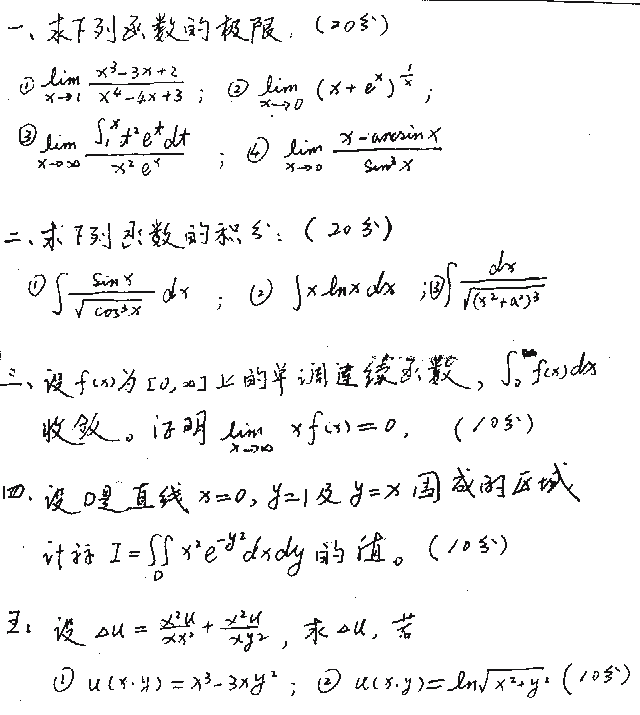 一、求下列函数的极限. (20分)
① lim_{x→1} (x³-3x+2)/(x⁴-4x+3) ; ② lim_{x→0} (x+eˣ)^{1/x} ;
③ lim_{x→∞} (∫₁ˣ t²eᵗdt)/(x²eˣ) ; ④ lim_{x→0} (x-arcsin x)/(sin³x)
二、求下列函数的积分: (20分)
① ∫ sin x/√(cos³x) dx ; ② ∫x ln x dx ; ③ ∫ dx/√((x²+a²)³)
三、设f(x)为[0,∞]上的单调连续函数, ∫₀^∞ f(x)dx
收敛。证明 lim_{x→∞} xf(x)=0. (10分)
四. 设D是直线 x=0, y=1及 y=x 围成的区域
计标 I=∬_D x²e^{-y²}dxdy 的值。(10分)
五: 设 △u = x²u/xx² + x²u/xy² , 求△u, 若
① u(x.y)=x³-3xy² ; ② u(x.y)=ln√(x²+y²) (10分)